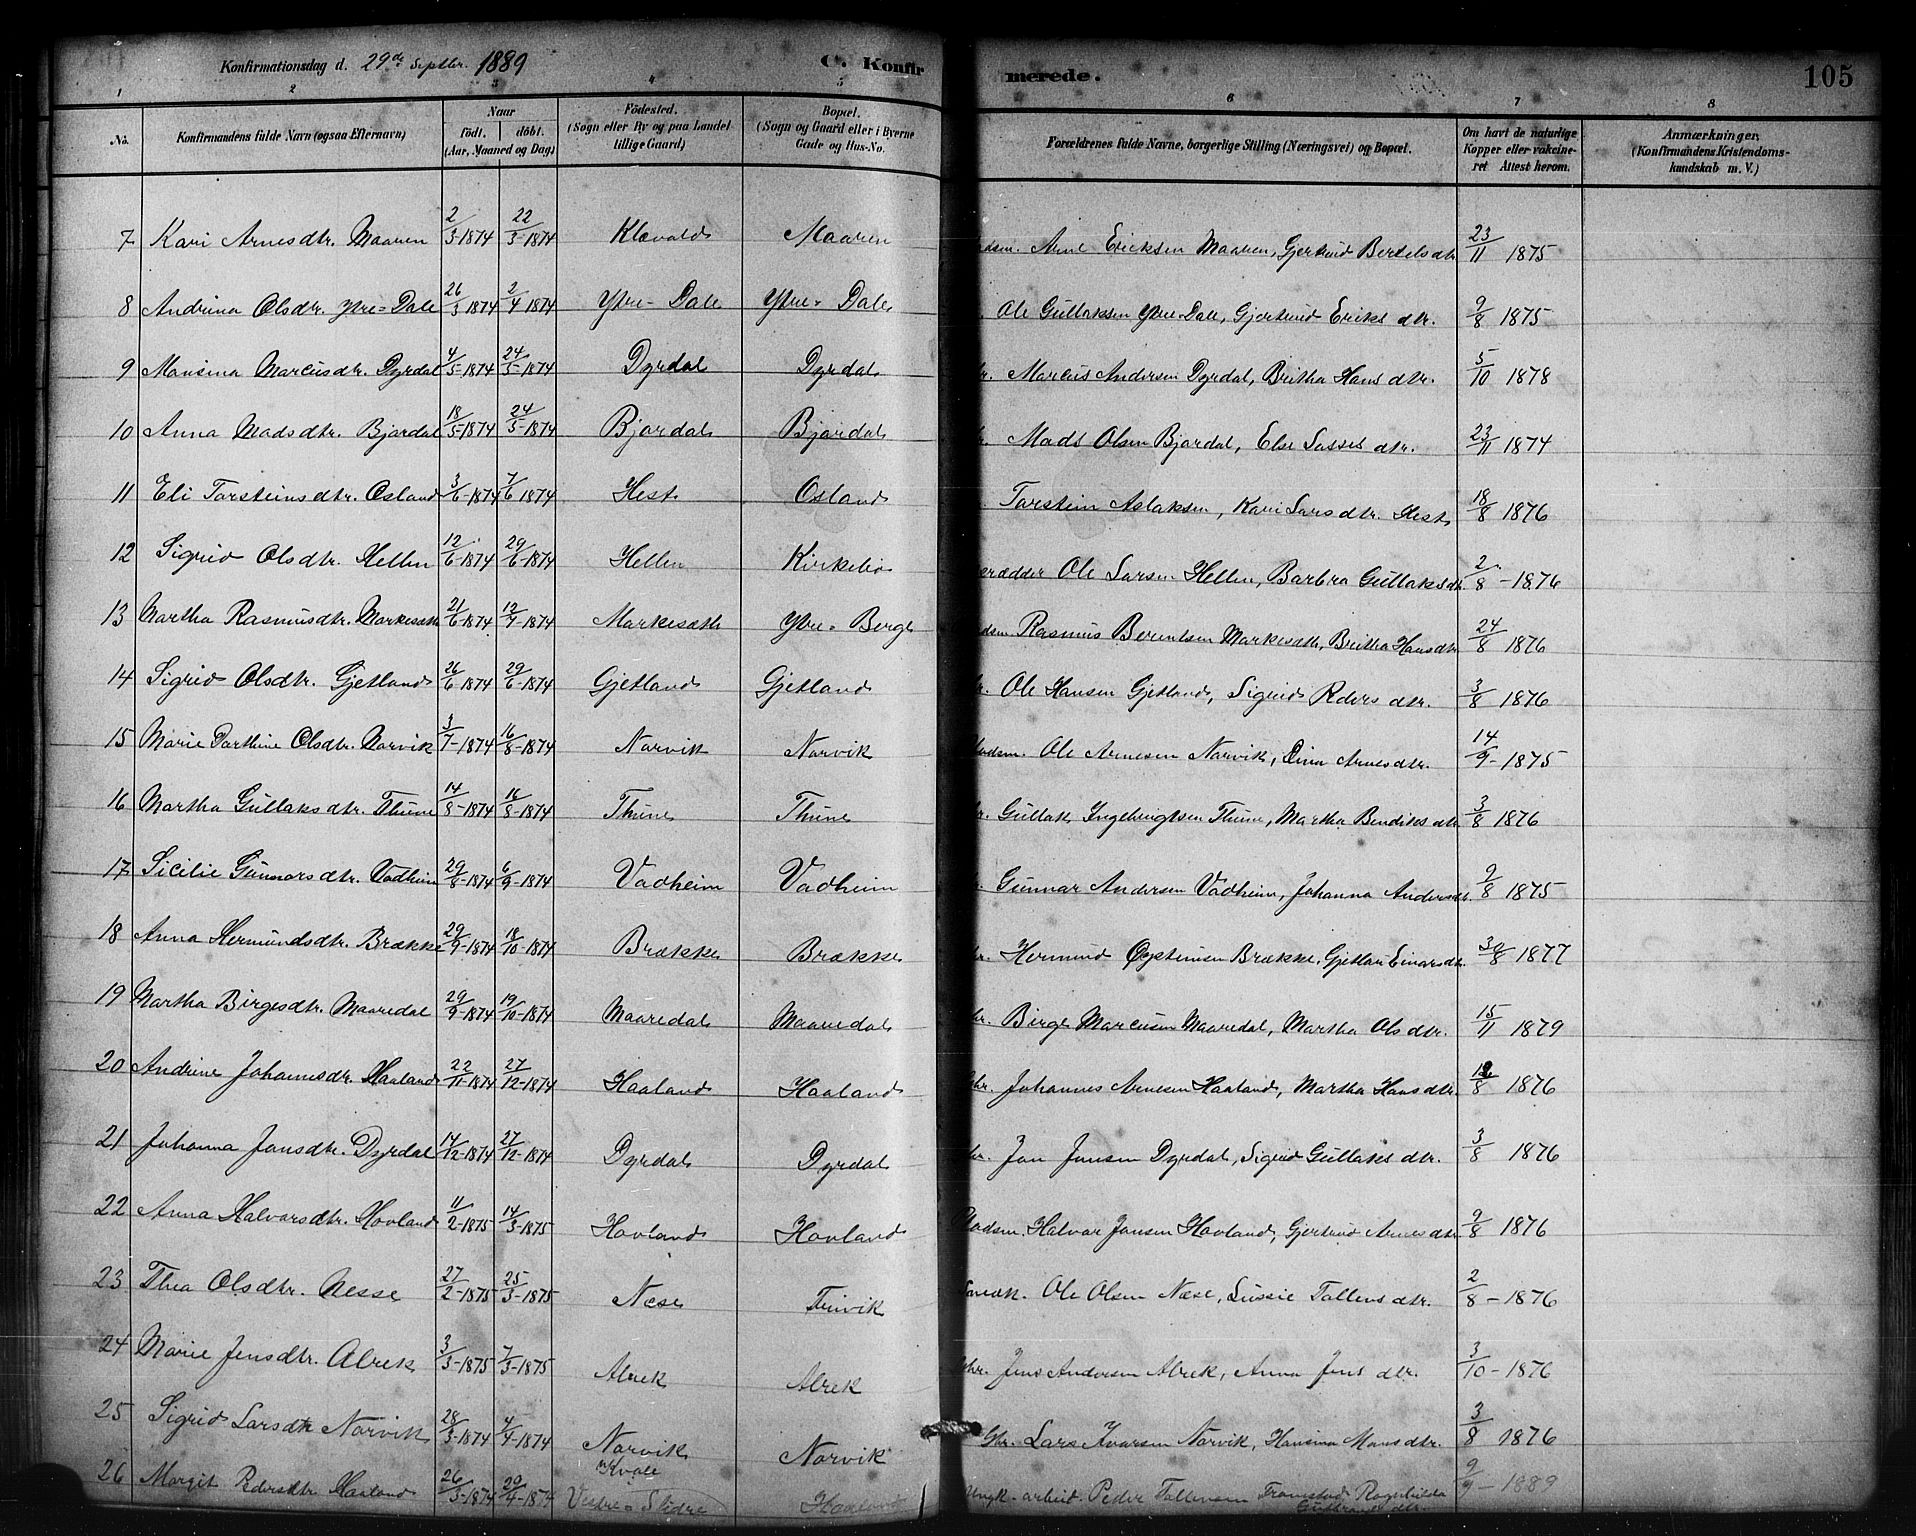 Konfirmationsdag d. 29de Septbr. 1889 C. Konfirmerede. 105
1 2 3 4 5 6 7 8
No. Konfirmandens fulde Navn (ogsaa Efternavn) Naar født. døbt. (Aar, Maaned og Dag) Fødested. (Sogn eller By og paa Landet tillige Gaard) Bopæl. (Sogn og Gaard eller i Byerne Gade og Hus-No. Forældrenes fulde Navne, borgerlige Stilling (Næringsvei) og Bopæl. Om havt de naturlige Kopper eller vakcineret Attest herom. Anmærkninger. (Konfirmandens Kristendomskundskab m. V.)
7 Kari Arnesdtr. Maaren 2/3-1874 22/3-1874 Klævold Maaren Arne Ericksen Maaren, Gjertrud Bertelsdtr 23/11 1875
8 Andrina Olsdtr. Ytre=Dale 26/3-1874 2/4 1874 Ytre-Dale Ytre-Dale Ole Gullaksen Ytre-Dale, Gjertrud Eriks dtr. 9/8 1875
9 Mansina Marcusdtr. Dyrdal 4/5-1874 24/5-1874 Dyrdal Dyrdal Marcus Andersen Dyrdal, Britha Hans dtr. 5/10 1878
10 Anna Madsdtr. Bjordal 18/5-1874 24/5-1874 Bjordal Bjordal Mads Olsen Bjordal, Else Lasses dtr. 23/11 1874
11 Eli Torsteinsdtr. Osland 3/6-1874 7/6 1874 Hest Osland Torstein Aslaksen, Kari Larsdtr. Hest 18/8 1876
12 Sigrid Olsdtr. Hellen 12/6-1874 29/6-1874 Hellen Kirkebø Ole Larsen Hellen, Barbra Gullaksdtr 2/8-1876
13 Martha Rasmusdtr. Markesæth 21/6-1874 12/7-1874 Markesæth Ytre-Berge Rasmus Berentsen Markesæth, Britha Hansdtr 24/8 1876
14 Sigrid Olsdtr. Gjetland 26/6 1874 29/6-1874 Gjetland Gjetland Ole Hansen Gjetland, Sigrid Peders dtr. 3/8 1876
15 Marie Dorthine Olsdtr. Norvik 3/7-1874 16/8-1874 Norvik Norvik Ole Arnesen Norvik, Dina Arnesdtr. 14/9-1875
16 Martha Gullaksdtr. Thune 14/8-1874 16/8-1874 Thune Thune Gullak Ingebrigtsen Thune, Martha Bendiks dtr 3/8 1876
17 Sicilie Gunnarsdtr. Vadheim 29/8-1874 6/9-1874 Vadheim Vadheim Gunnar Andersen Vadheim, Johanna Andersdtr. 9/8 1875
18 Anna Hermundsdtr. Brække 29/9-1874 18/10-1874 Brække Brække Hermund Øystensen Brække, Gjetlau Einarsdtr. 30/8 1877
19 Martha Birgesdtr. Maaredal 29/9-1874 19/10-1874 Maaredal Maaredal Birge Marcusen Maaredal, Martha Olsdtr. 15/11 1879
20 Andrine Johannesdtr. Haaland 22/11-1874 27/12-1874 Haaland Haaland Johannes Arnesen Haaland, Martha Hansdtr. 1876
21 Johanna Jonsdtr. Dyrdal 14/12-1874 27/12-1874 Dyrdal Dyrdal Jon Jonsen Dyrdal, Sigrid Gullaks dtr. 3/8 1876
22 Anna Halvorsdtr. Hovland 11/2-1875 14/3-1875 Hovland Hovland Pladsm. Halvor Jonsen Hovland, Gjertrud Arnesdtr 9/8 1876
23 Thea Olsdtr. Nesse 27/2-1875 25/3-1875 Næse Tenvik Ole Olsen Næse, Lussie Tollevsdtr. 2/8-1876
24 Marie Jensdtr. Alrek 3/3-1875 7/3-1875 Alrek Alrek Jens Andersen Alrek, Anna Jens dtr. 3/10-1876
25 Sigrid Larsdtr Norvik 28/3-1874 4/4-1874 Norvik Norvik Gbr. Lars Ivarsen Norvik, Hansina Mons dtr. 3/8 1876
26 Margit Pedersdtr Haaland 26/3-1874 20/4-1874 Kvale Vestre=Slidre Haaland arbeid. Peder Tollevsen Ragnhilda Gulbrandsdtr. 9/9-1889